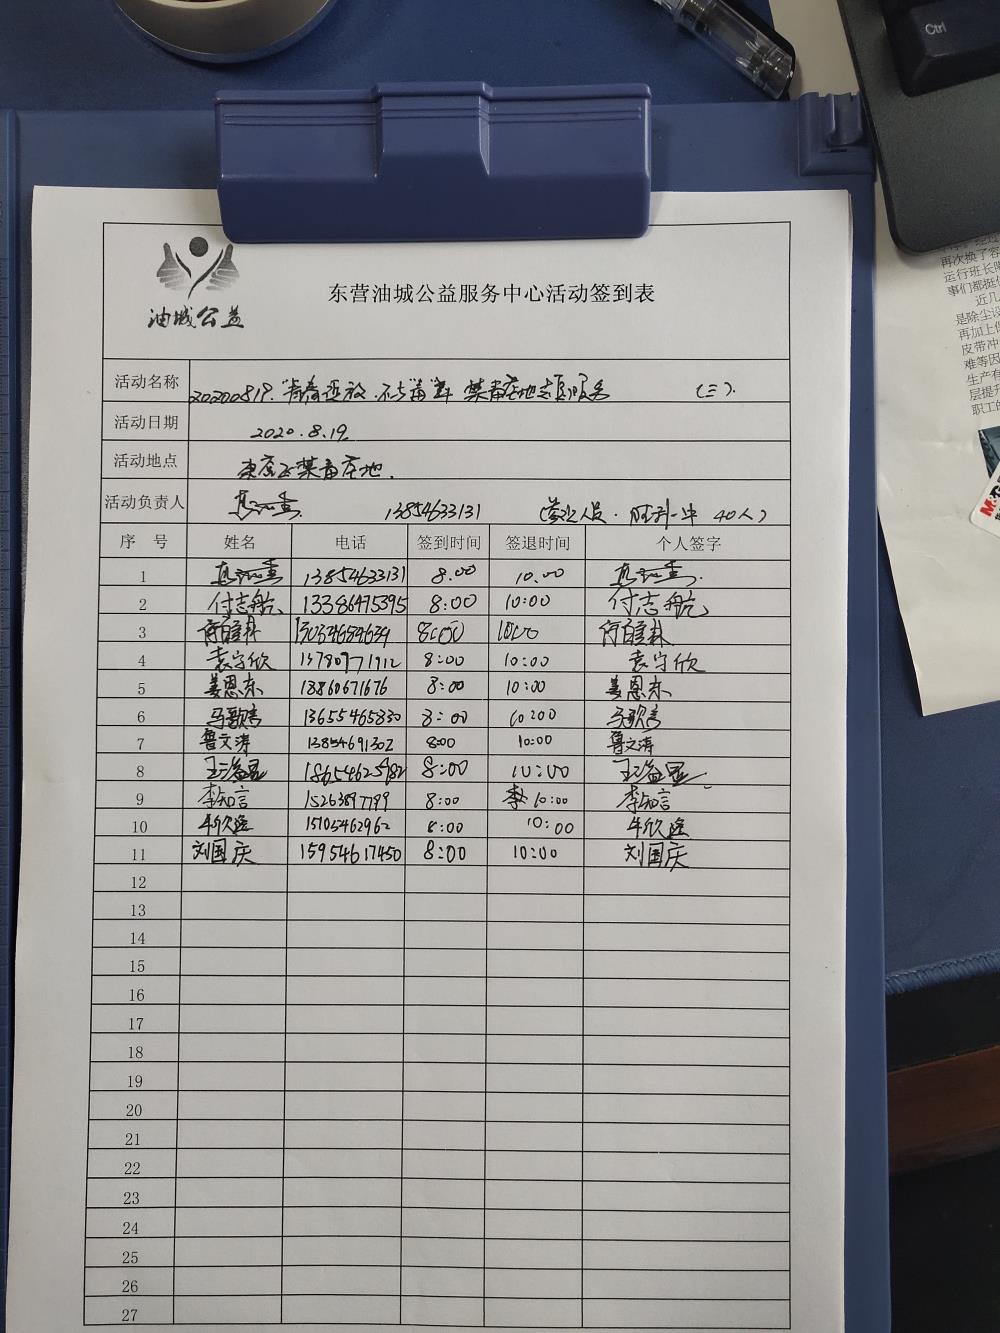 Ctrl
油城公益
东营油城公益服务中心活动签到表
活动名称 20200819.青春 不与毒 禁毒基地志愿服务 (三).
活动日期 2020.8.19
活动地点 禁毒基地.
活动负责人 13854633131 (参 人员. 胜利一中 40人)
序 号 姓名 电话 签到时间 签退时间 个人签字
1 13854633131 8.00 10.00
2 付志航 13386475395 8:00 10:00 付志航
3 8:00 10:00
4 袁宇欣 13780771912 8:00 10:00 袁宇欣
5 姜恩东 18860671676 8:00 10:00 姜恩东
6 马歌言 13655465830 8:00 10:00 马歌言
7 鲁文涛 13854691302 8:00 10:00 鲁文涛
8 王益昆 8:00 10:00 王益昆
9 李知言 15263897799 8:00 10:00 李知言
10 牛欣 15105462962 8:00 10:00 牛欣
11 刘国庆 15954617450 8:00 10:00 刘国庆
12
13
14
15
16
17
18
19
20
21
22
23
24
25
26
27
再次换了容
运行班长
事们都挺
近几
是除尘设
再加上
皮带冲
难等因
生产有
层提升
职工的